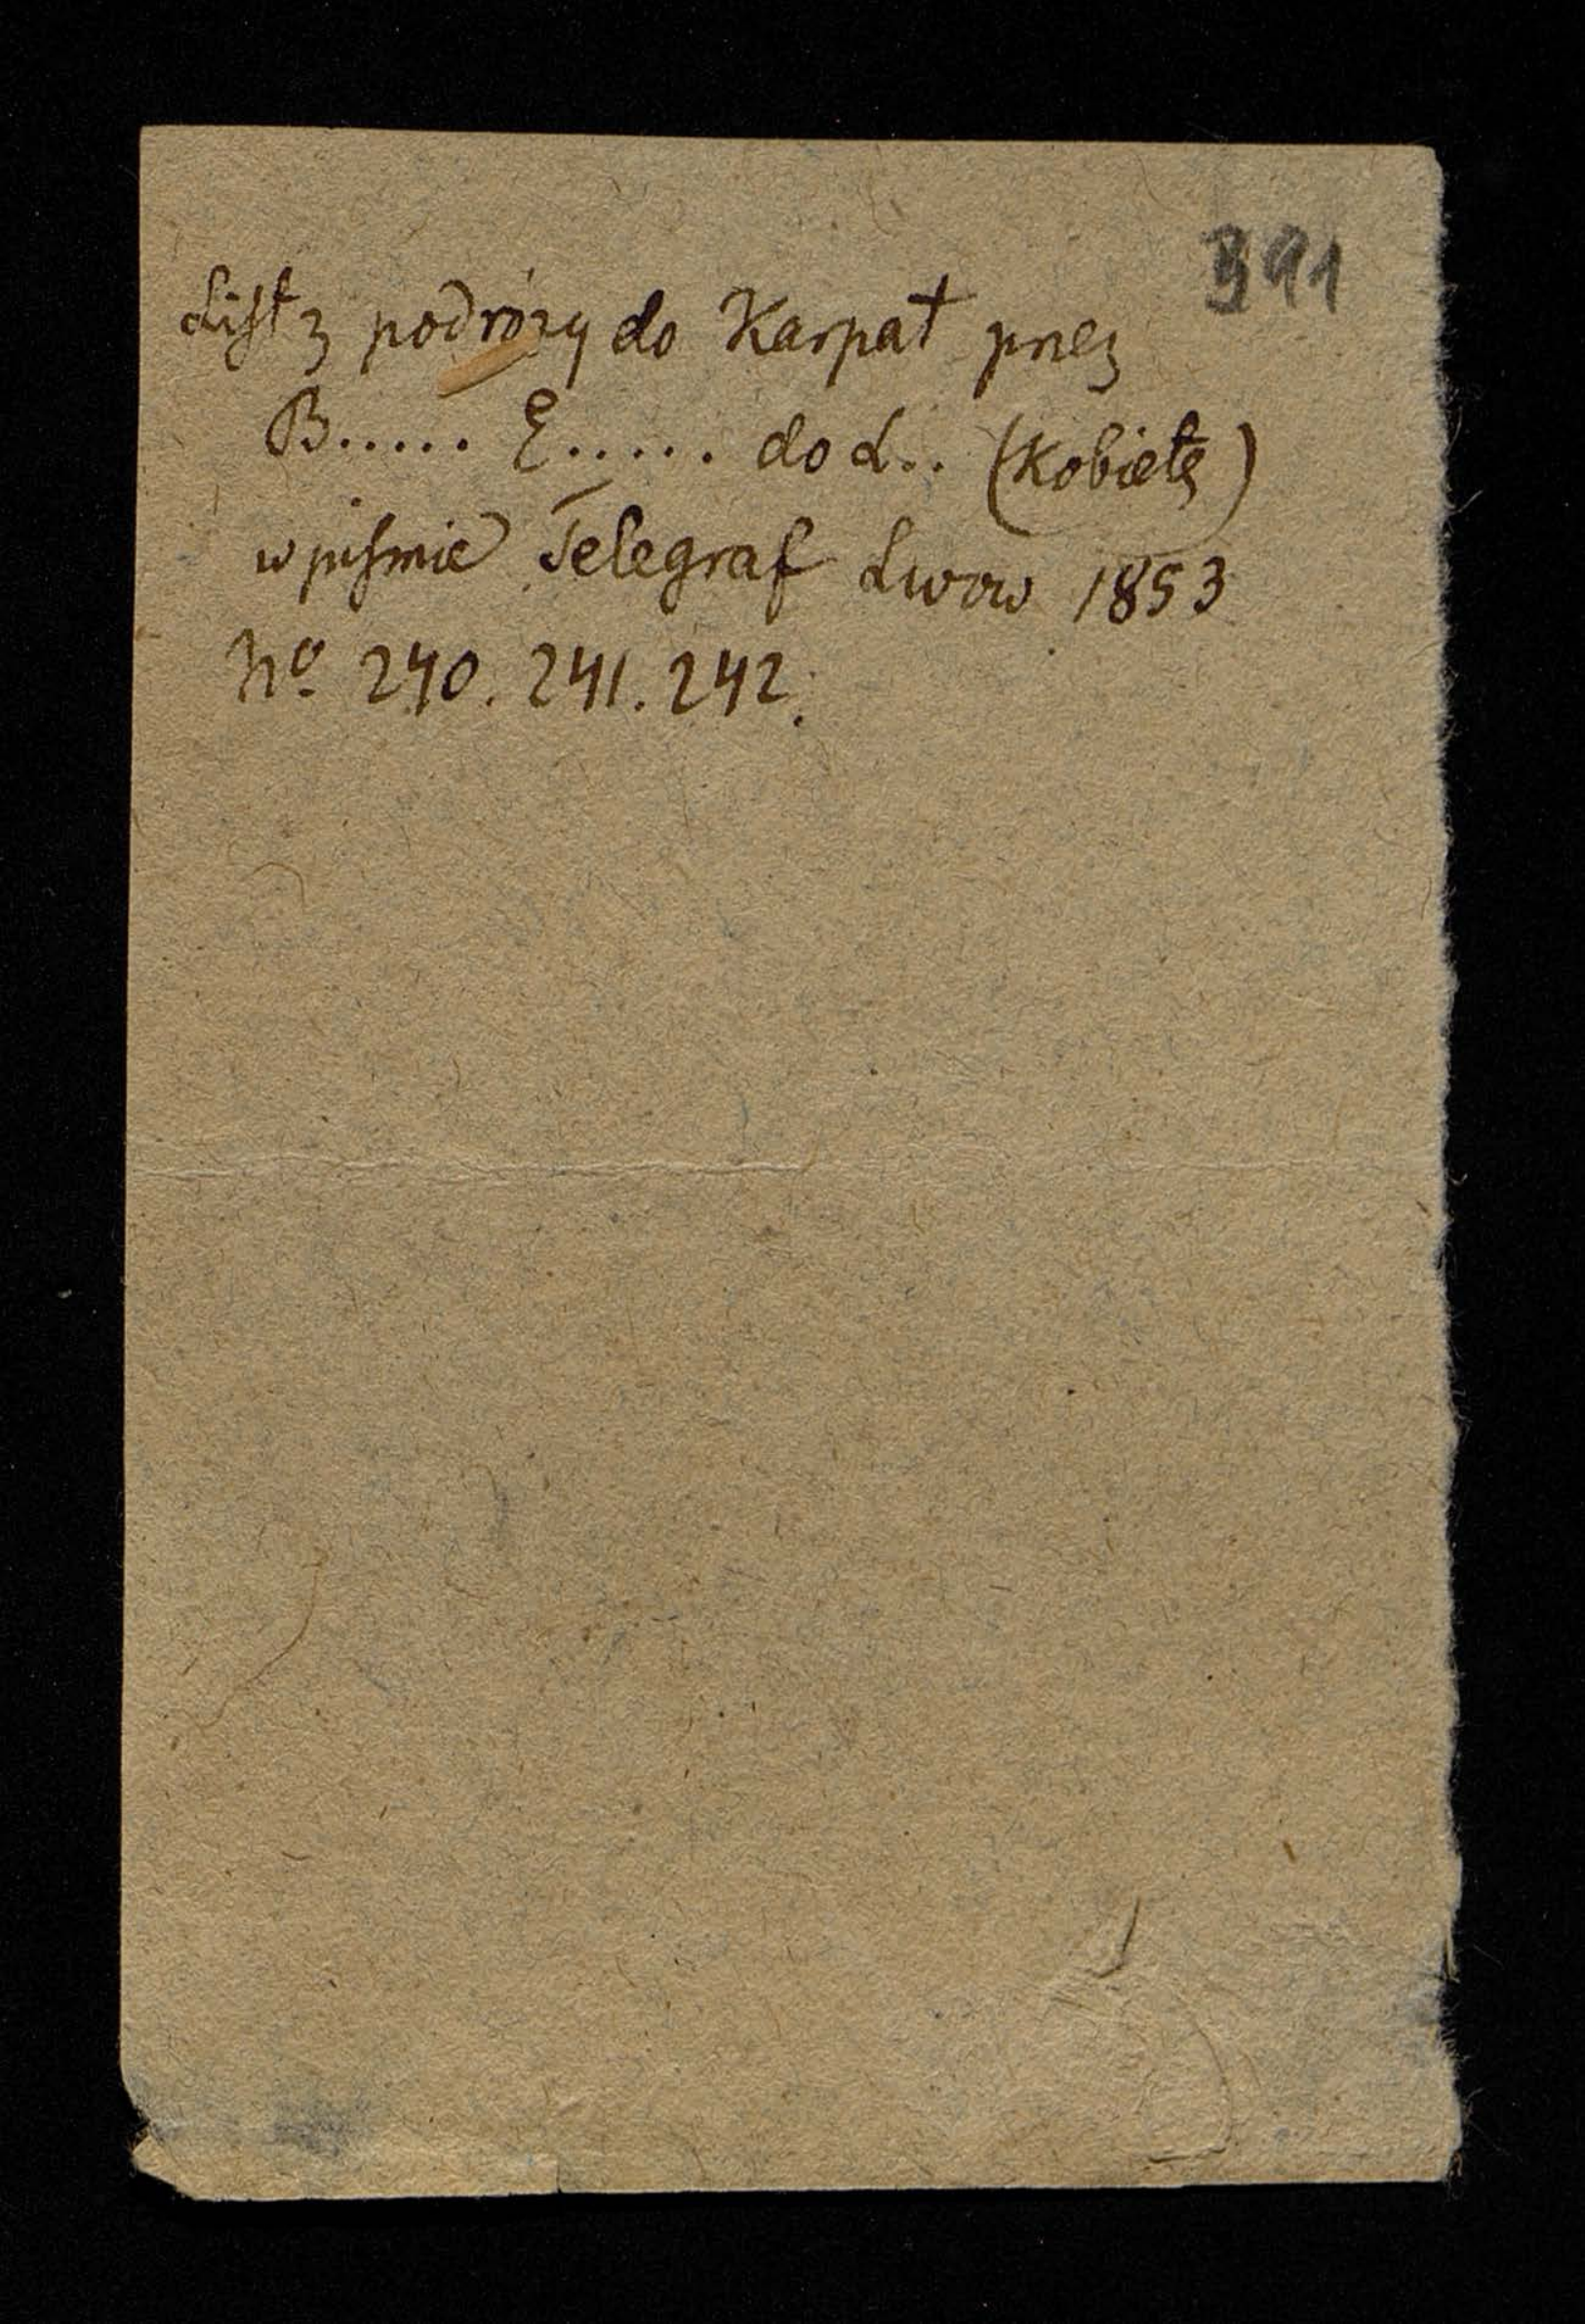 391
List z podróży do Karpat przez
B..... E..... do L.. (Kobietę)
w piśmie Telegraf Lwow 1853
No 240. 241. 242.